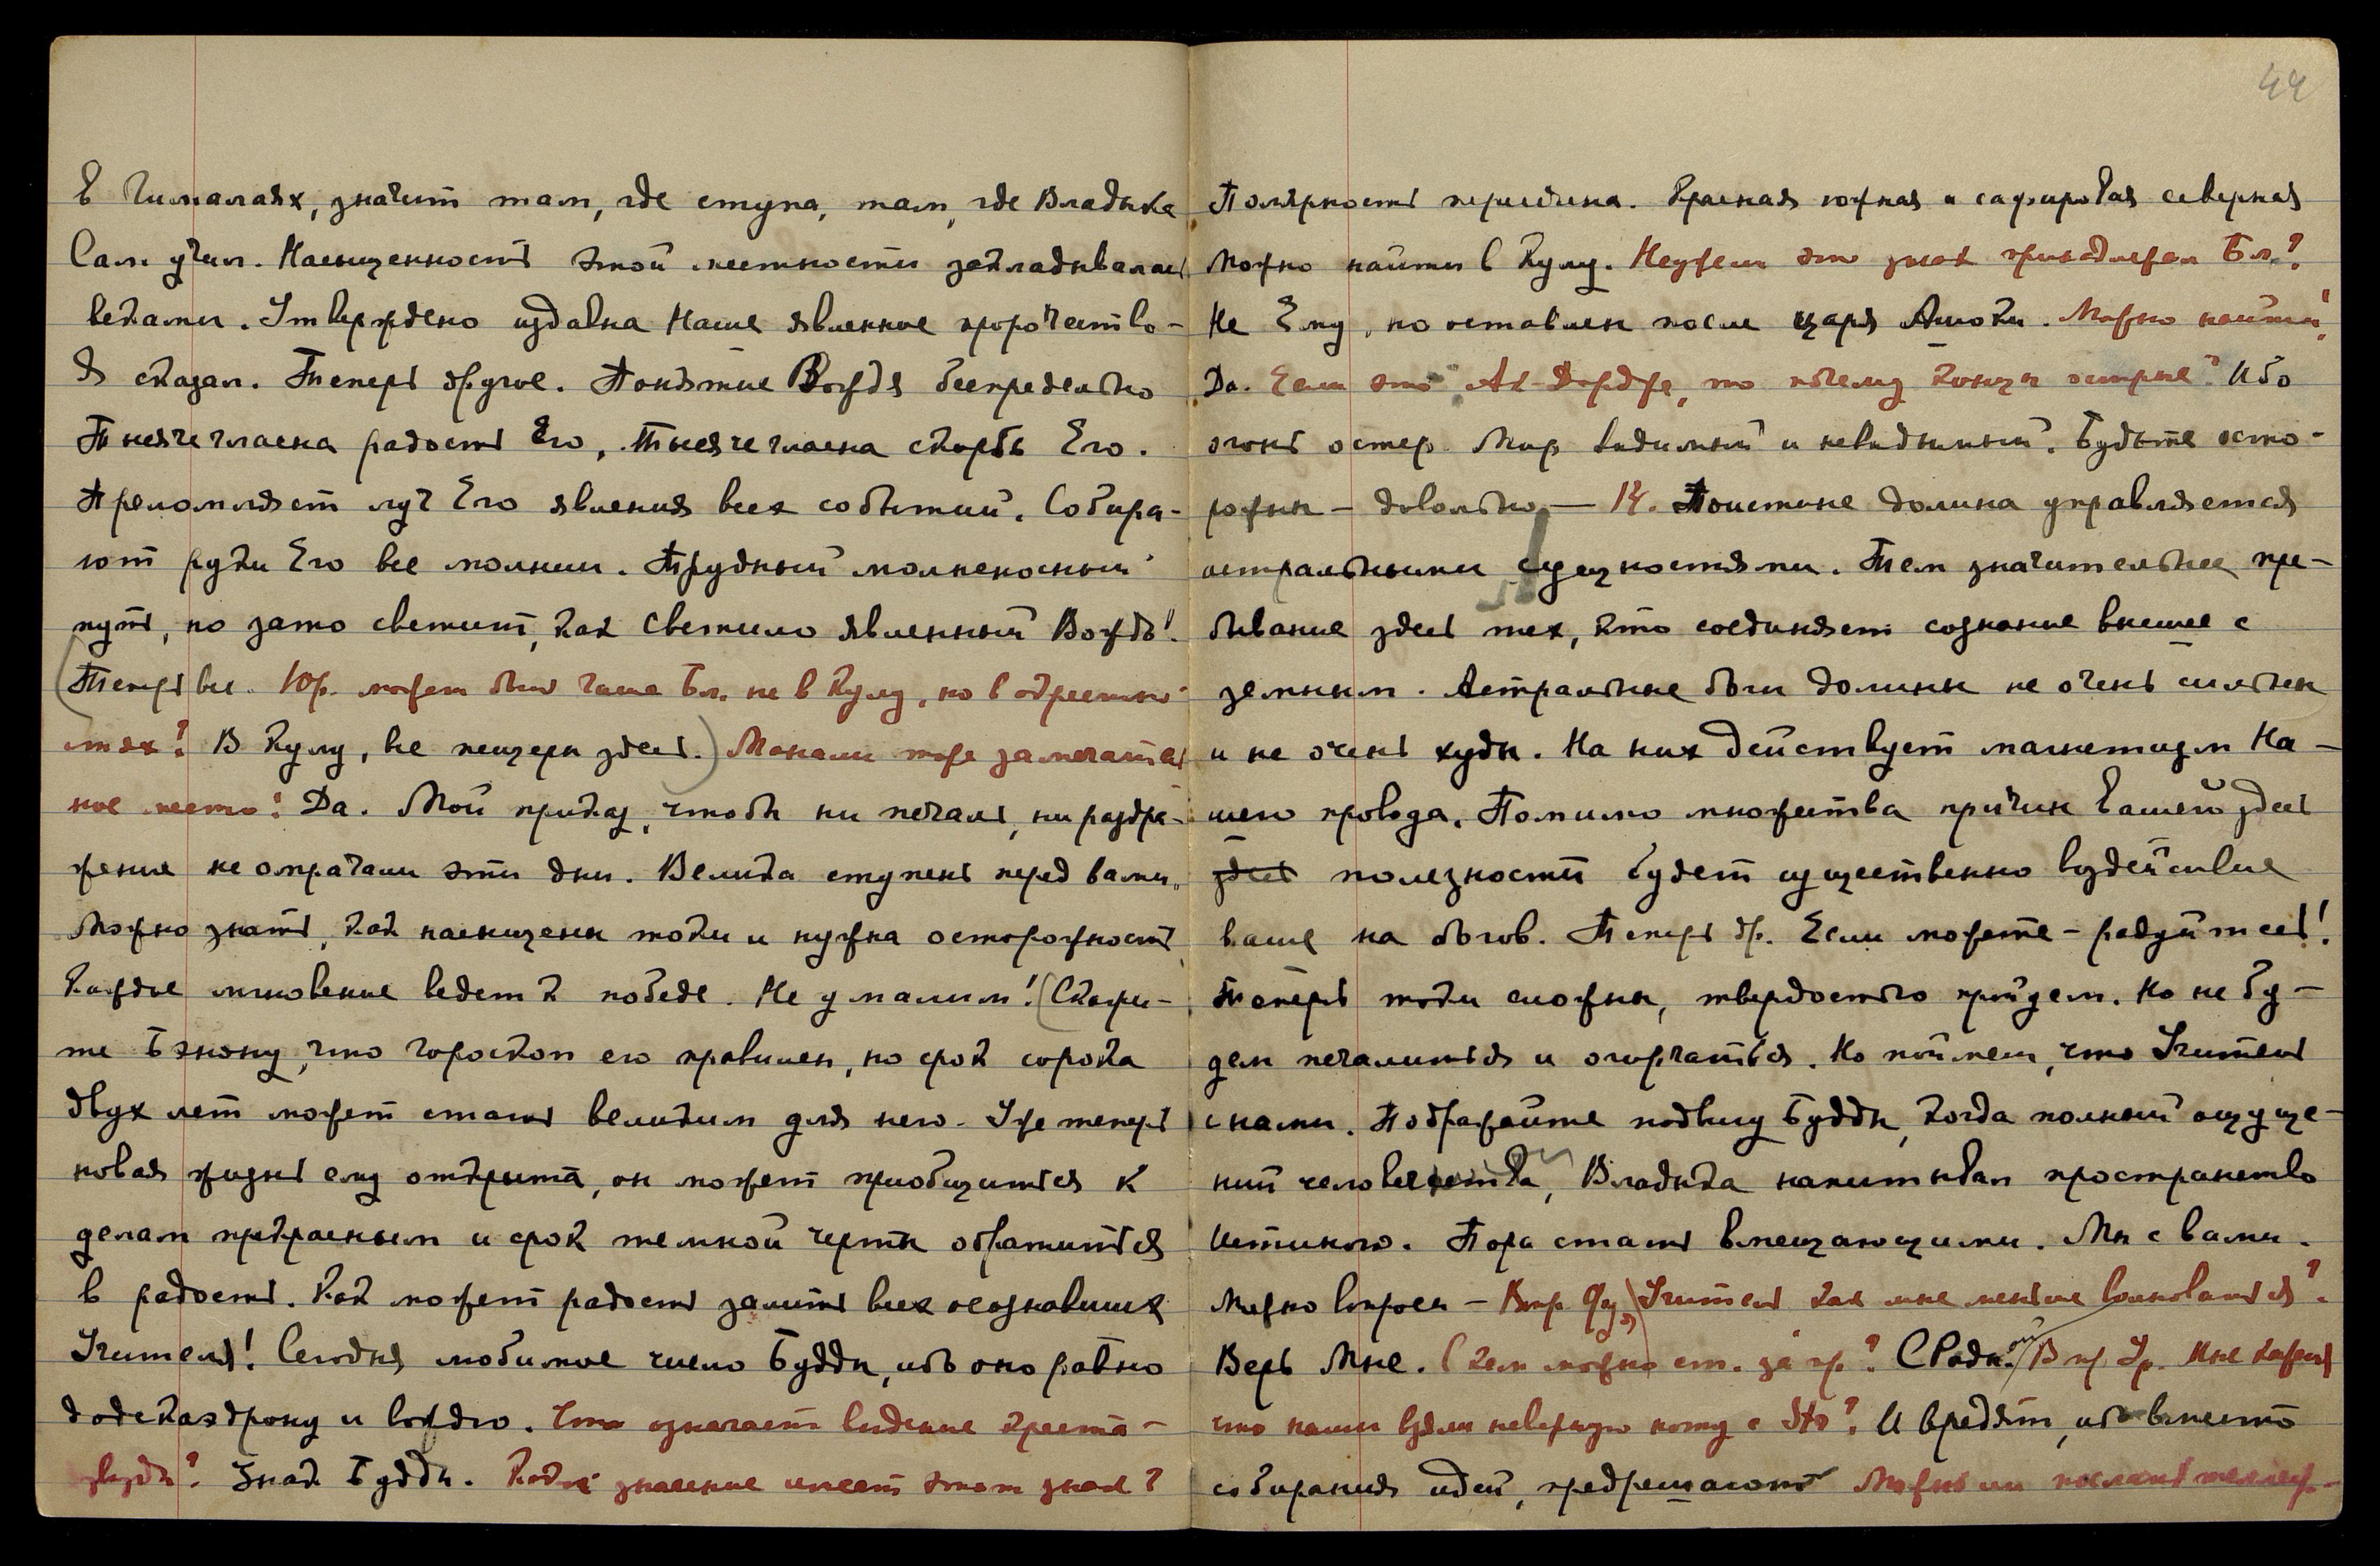 в Гималаях, значит там, где ступа, там, где Владыка
Сам учил. Насыщенность этой местности закладывалась
веками. Утверждено издавна Наше явленное пророчество –
Я сказал. Теперь другое. Понятие Вождя беспредельно
Тысячегласна радость Его, тысячегласна скорбь Его.
Преломляет луч Его явления всех событий. Собира-
ют руки Его все молнии. Трудный молниеносный
путь, но зато светит, как светило явленный Вождь!
(Теперь все. Юр. может быть чаша Бл. не в Кулу, но в окрестно-
стях? В Кулу, все пещеры здесь.) Манали тоже замечатель
ное место? Да. Мой приказ, чтобы ни печаль, ни раздра-
жение не омрачали эти дни. Велика ступень перед вами.
Можно знать, как насыщены токи и нужна осторожность
Каждое мгновение ведет к победе. Не умалим! (Скажи-
те Бэнону, что гороскоп его правилен, но срок сорока
двух лет может стать великим для него. Уже теперь
новая жизнь ему открыта, он может приобщиться к
делам прекрасным и срок темной черты обратится
в радость. Как может радость залить всех осознавших
Учителя! Сегодня любимое число Будды, ибо оно равно
додекаэдрону и вождю. Что означает видение креста –
звезды? Знак Будды. Какое значение имеет этот знак?
44
Полярность периодична. Красная южная и сафировая северная
Можно найти в Кулу. Неужели это знак принадлежал Бл.?
Не Ему, но оставлен после царя Ашоки. Можно найти?
Да. Если это Ак-Дордже, то почему концы острые? Ибо
огонь остер. Мир видимый и невидимый. Будьте осто-
рожны – довольно. – 14. Поистине долина управляется
астральными сущностями. Тем значительнее пре-
бывание здесь тех, кто соединяет сознание высшее с
земным. Астральные боги долины не очень сильны
и не очень худы. На них действует магнетизм На-
шего провода. Помимо множества причин вашей здесь
здесь полезности будет существенно воздействие
ваше на богов. Теперь др. Если можете – радуйтесь!
Теперь токи сложны, твердостью пройдем. Но не бу-
дем печалиться и огорчаться. Но поймем, что Учитель
с нами. Подражайте подвигу Будды, когда полный ощуще-
ний человечества, Владыка напитывал пространство
Истиною. Пора стать вмещающими. Мы с вами.
Можно вопросы – Учитель как мне меньше волноваться?
Верь Мне. С кем можно ст. за гр.? С Радн. Вп. Ур. Мне кажется
что наши взяли неверную ноту с Sto? И вредят, ибо вместо
собирания идей, предрешают Можно ли послать телегр.-